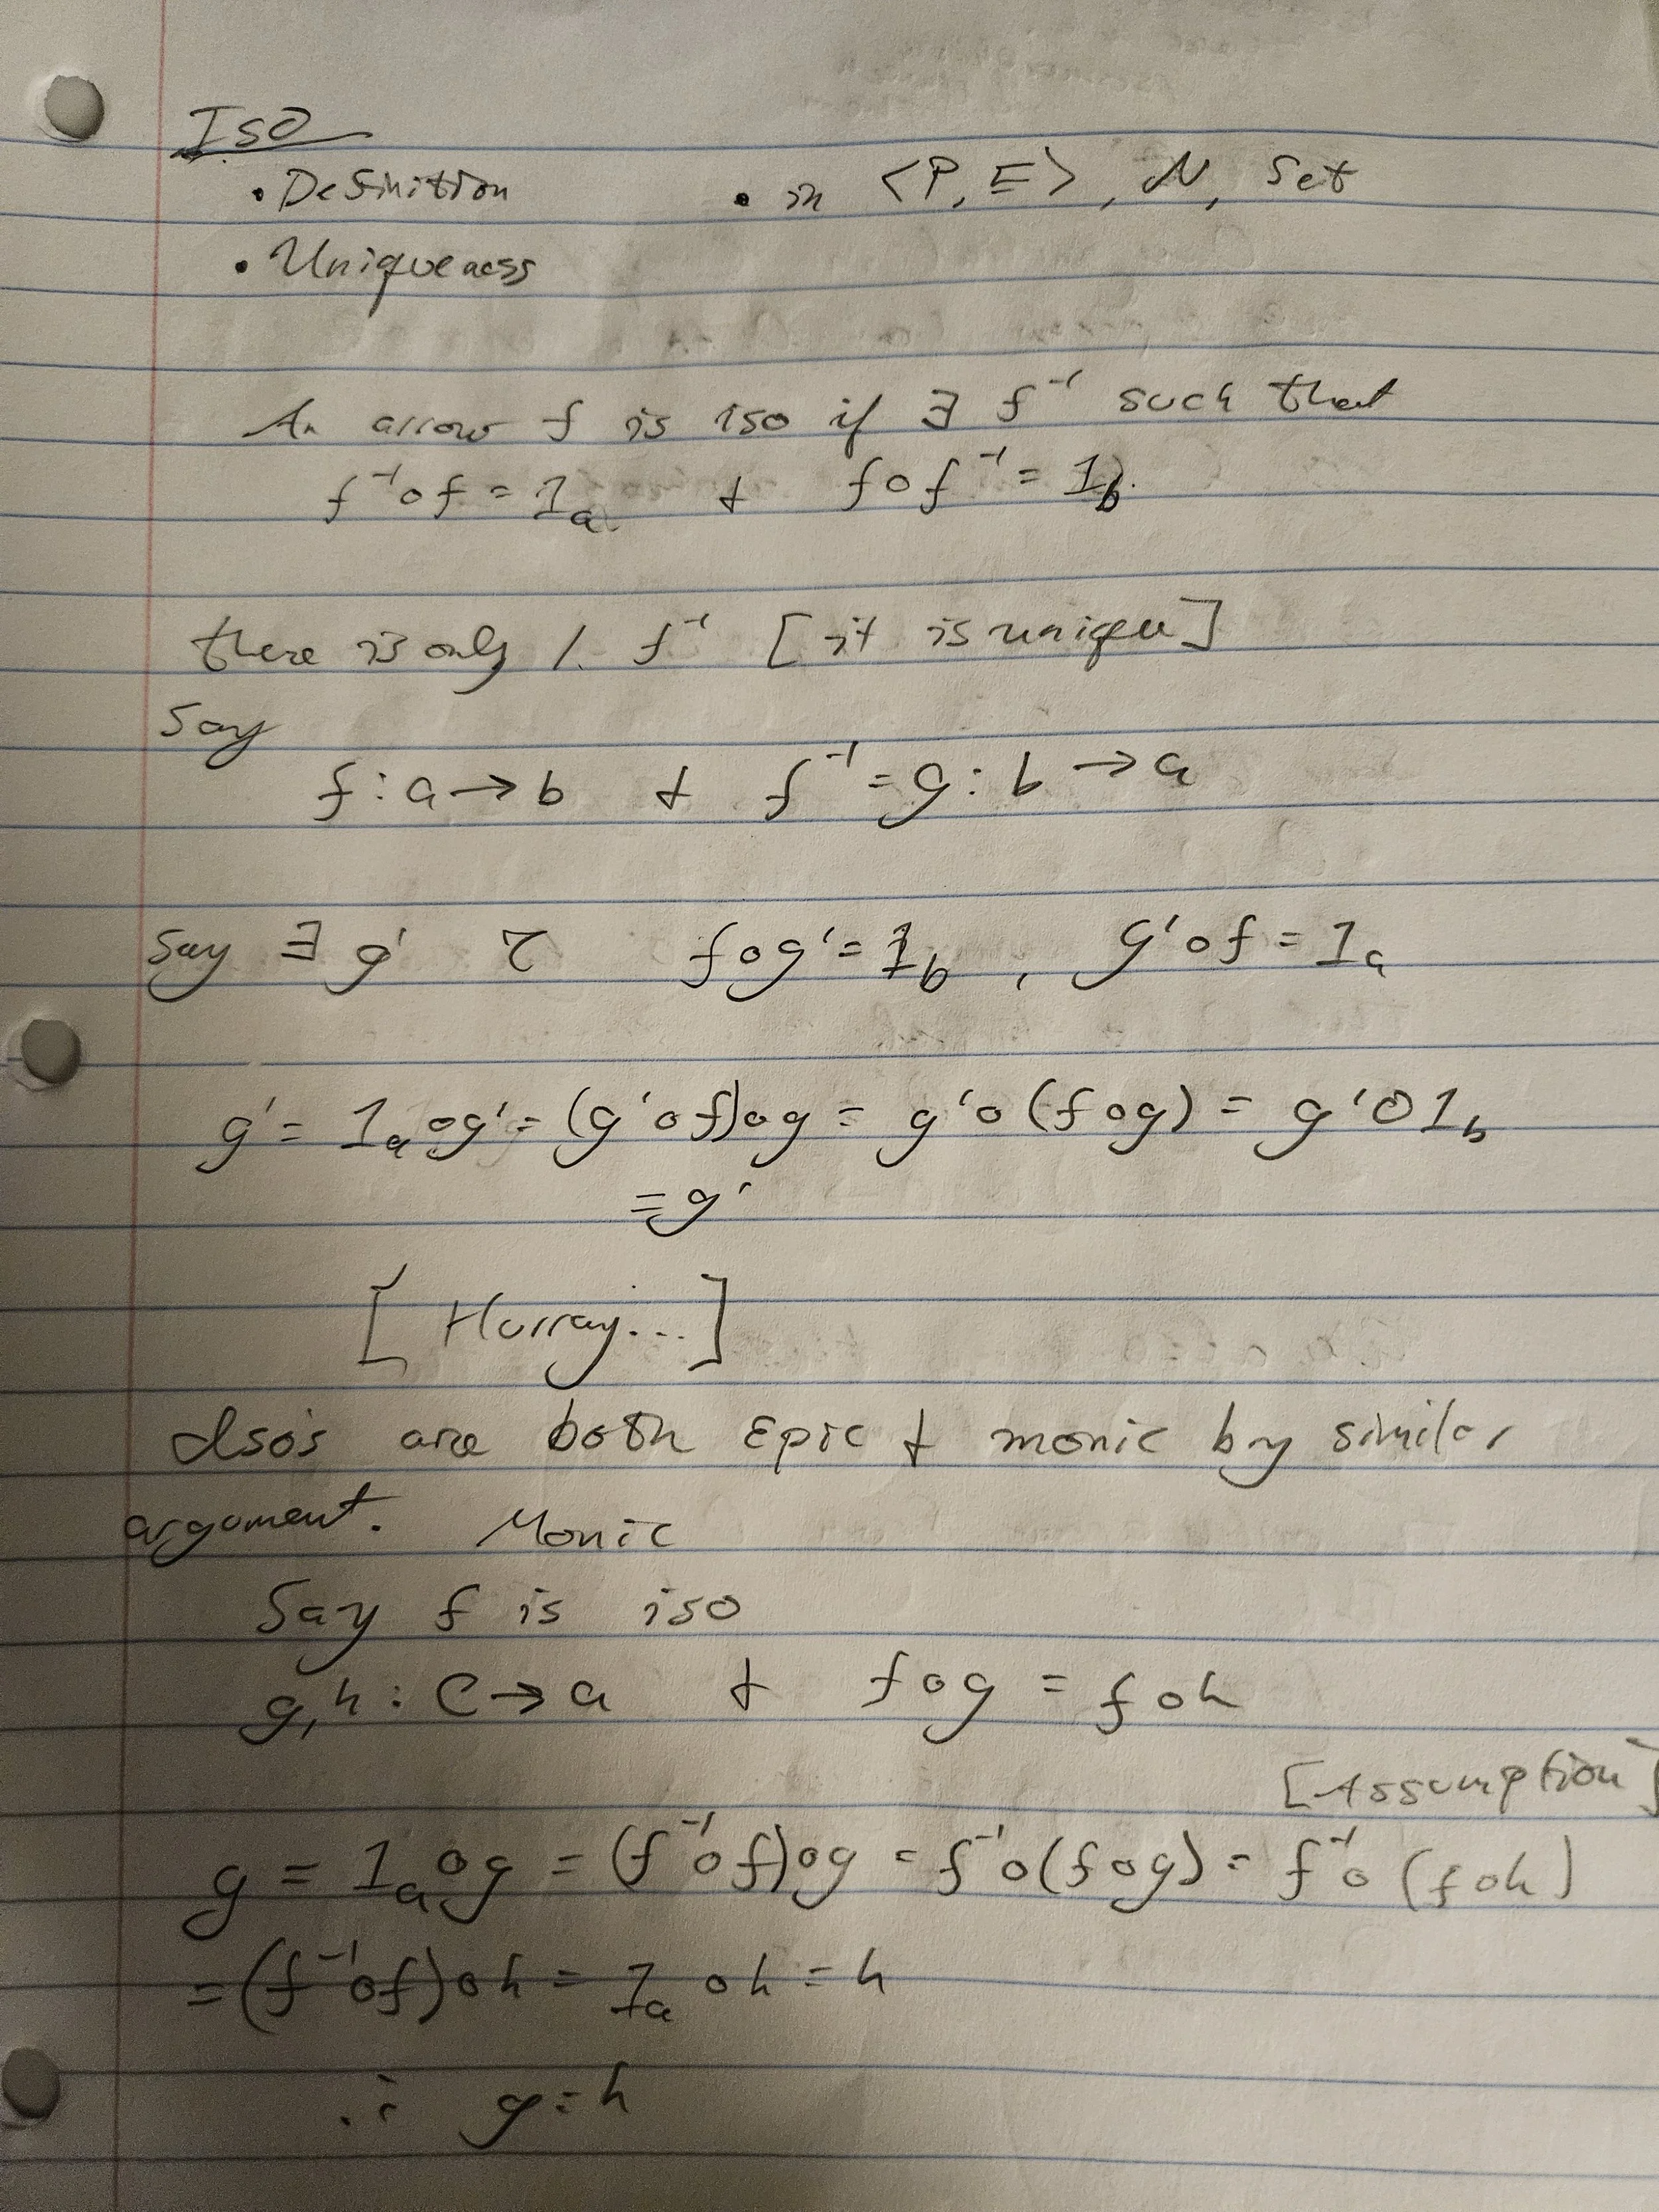 Iso
• Definition • in <P, ⊑>, N, Set
• Uniqueness
An arrow f is iso if ∃ f⁻¹ such that
f⁻¹∘f = 1ₐ & f∘f⁻¹ = 1_b.
there is only 1. f⁻¹ [it is unique]
Say
f: a → b & f⁻¹ = g: b → a
Say ∃ g' f∘g' = 1_b, g'∘f = 1ₐ
g' = 1ₐ∘g' = (g'∘f)∘g = g'∘(f∘g) = g'∘1_b
= g'
[Hurray...]
Iso's are both Epic & monic by similar
argument. Monic
Say f is iso
g,h: C → a & f∘g = f∘h
[Assumption]
g = 1ₐ∘g = (f⁻¹∘f)∘g = f⁻¹∘(f∘g) = f⁻¹∘(f∘h)
= (f⁻¹∘f)∘h = 1ₐ∘h = h
∴ g = h